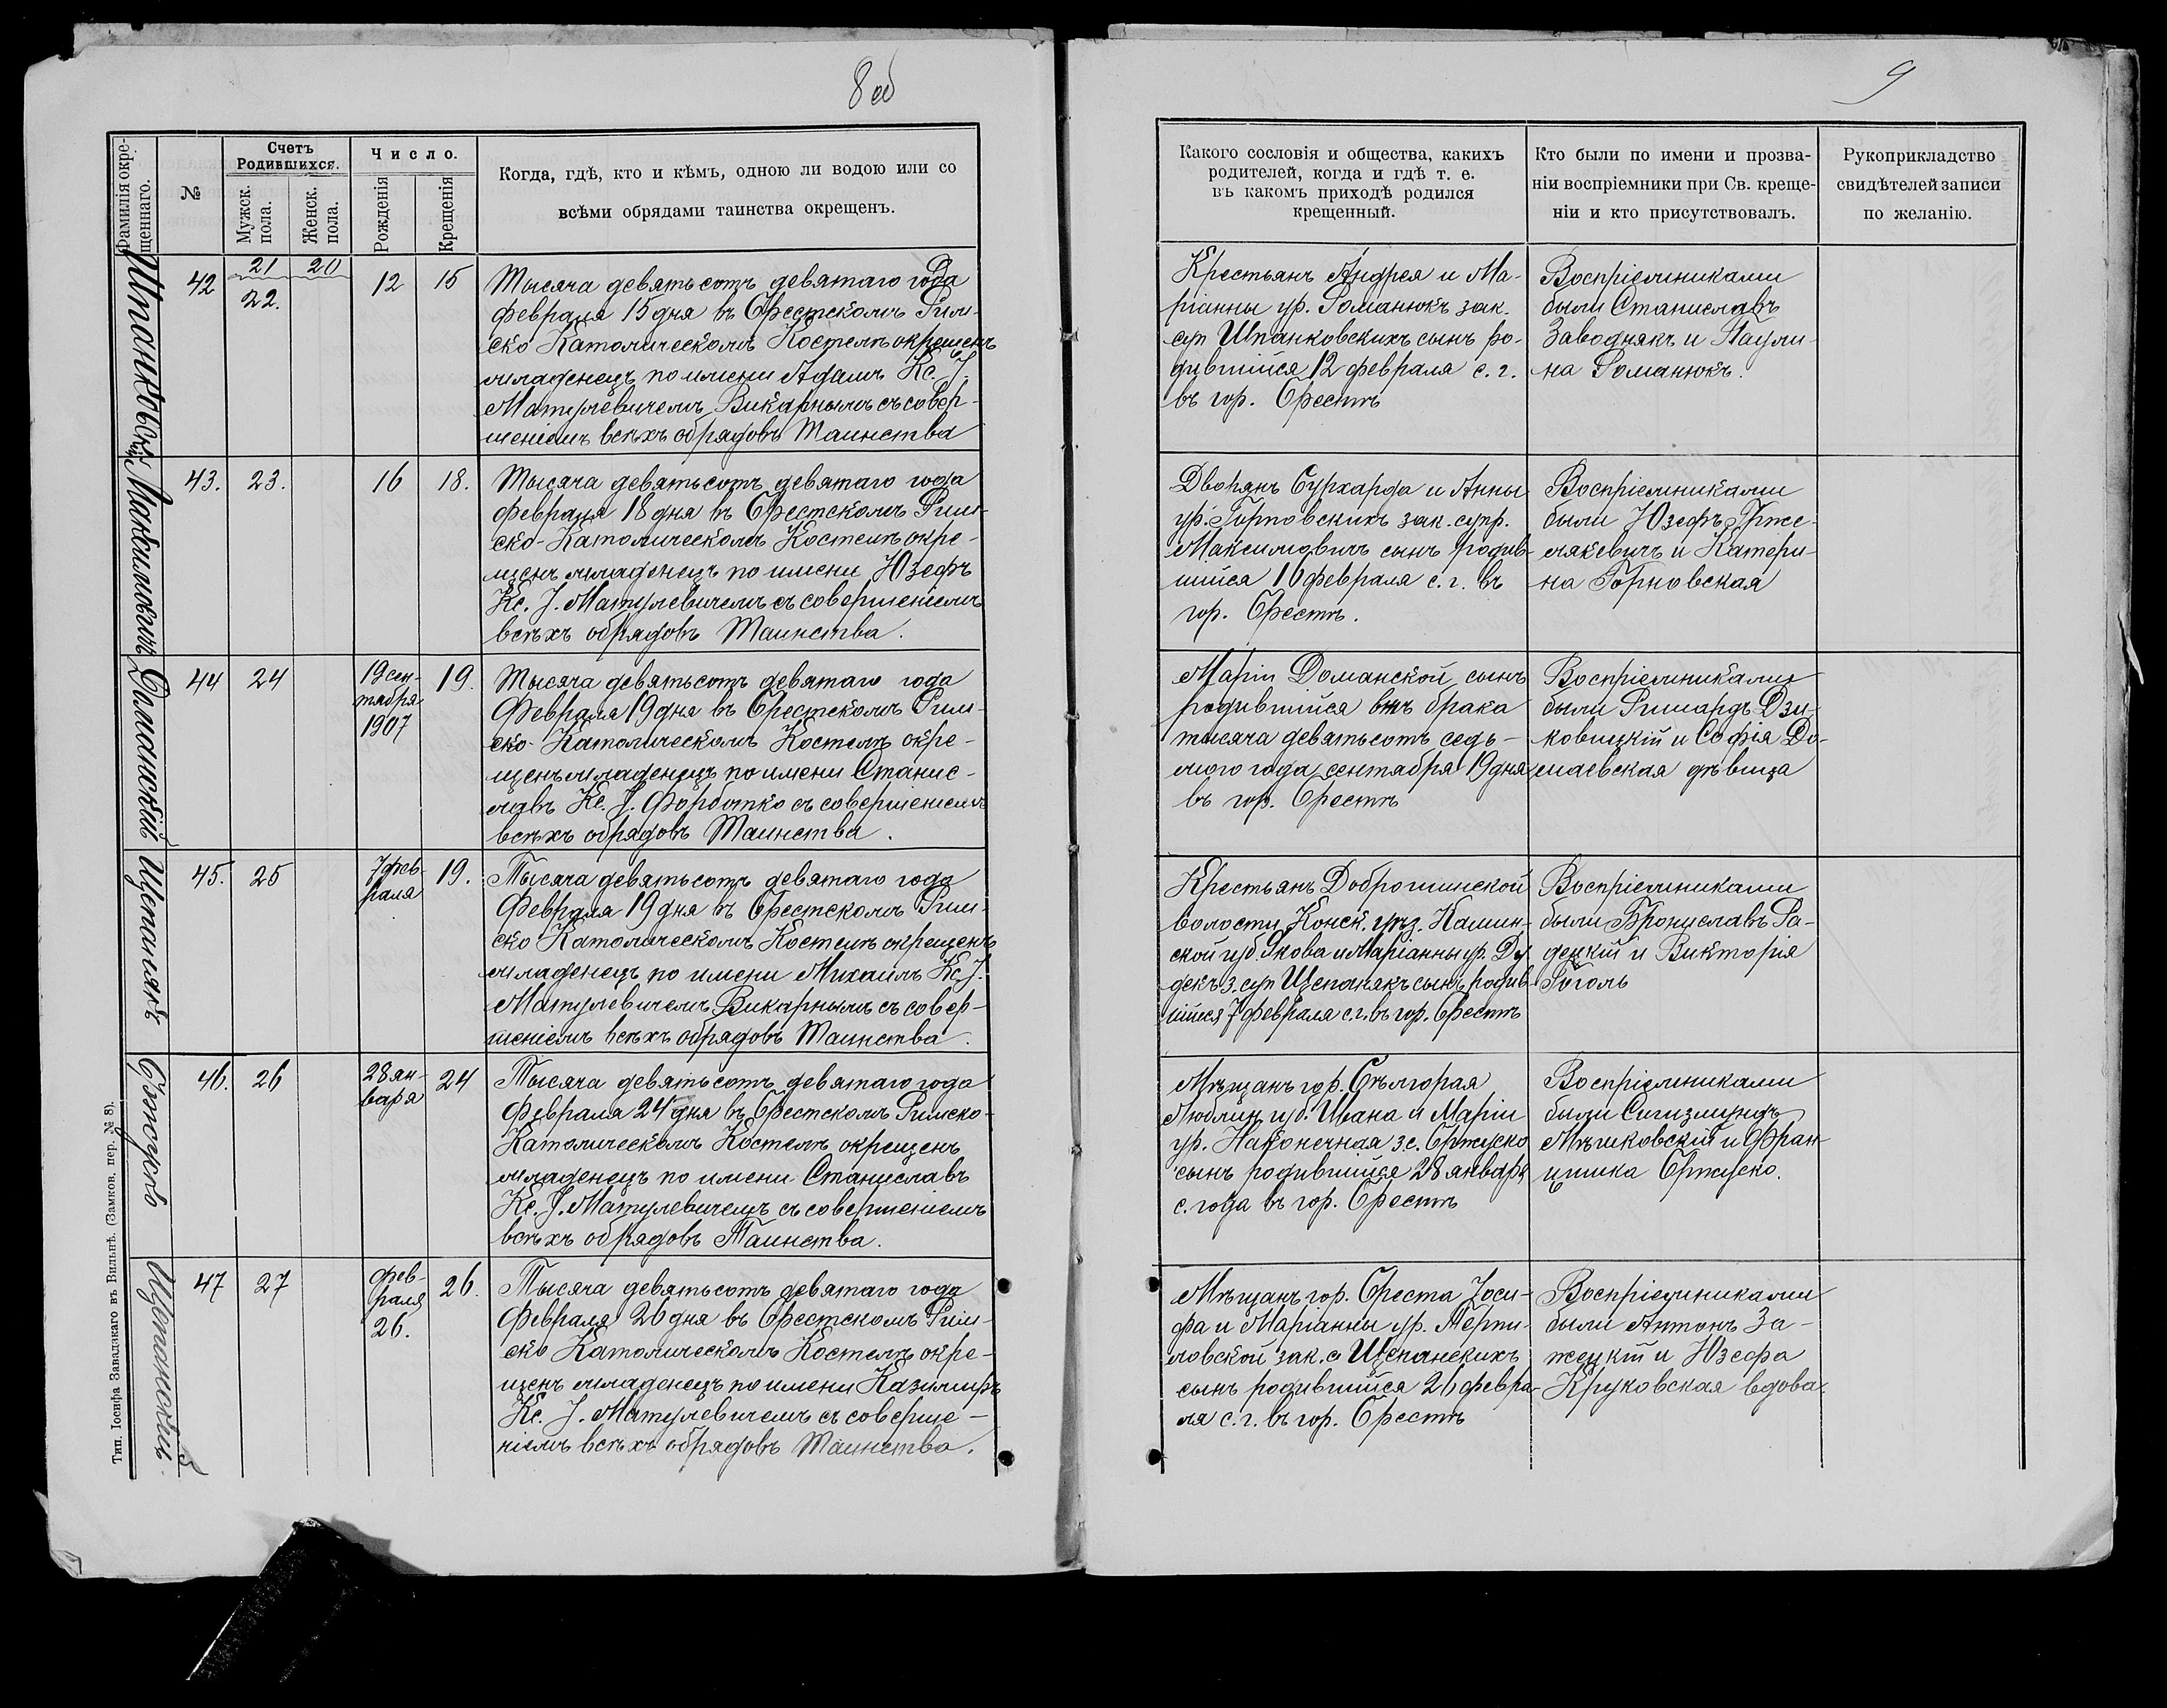 8 об
Фамилія окре-
щеннаго.
№
Счетъ
Родившихся.
Мужск.
пола.
Женск.
пола.
Число.
Рожденія
Крещенія
Когда, гдѣ, кто и кѣмъ, одною ли водою или со
всѣми обрядами таинства окрещенъ.
Шпанковскій
42
21
20
22.
12
15
Тысяча девятьсотъ девятаго года
февраля 15 дня въ Брестскомъ Рим-
ско Католическомъ Костелѣ окрещенъ
младенецъ по имени Адамъ Кс. J.
Матулевичемъ Викарнымъ съ совер-
шеніемъ всѣхъ обрядовъ Таинства
Максимовичъ
43.
23.
16
18.
Тысяча девятьсотъ девятаго года
февраля 18 дня въ Брестскомъ Рим-
ско-Католическомъ Костелѣ окре-
щенъ младенецъ по имени Юзефъ
Кс. J. Матулевичемъ съ совершеніемъ
всѣхъ обрядовъ Таинства.
Доманскій
44
24
19 сен-
тября
1907
19.
Тысяча девятьсотъ девятаго года
Февраля 19 дня въ Брестскомъ Рим-
ско-Католическомъ Костелѣ окре-
щенъ младенецъ по имени Станис-
лавъ Кс. J. Форботко съ совершеніемъ
всѣхъ обрядовъ Таинства.
Щепанякъ
45.
25
7 фев-
раля
19.
Тысяча девятьсотъ девятаго года
Февраля 19 дня въ Брестскомъ Рим-
ско Католическомъ Костелѣ окрещенъ
младенецъ по имени Михаилъ Кс. J.
Матулевичемъ Викарнымъ съ совер-
шеніемъ всѣхъ обрядовъ Таинства.
46.
26
28 ян-
варя
24
Тысяча девятьсотъ девятаго года
Февраля 24 дня въ Брестскомъ Римско-
Католическомъ Костелѣ окрещенъ
младенецъ по имени Станиславъ
Кс. J. Матулевичемъ съ совершеніемъ
всѣхъ обрядовъ Таинства.
Щепанскій
47
27
фев-
раля
26.
26.
Тысяча девятьсотъ девятаго года
Февраля 26 дня въ Брестскомъ Рим-
ско Католическомъ Костелѣ окре-
щенъ младенецъ по имени Казимиръ
Кс. J. Матулевичемъ съ соверше-
ніемъ всѣхъ обрядовъ Таинства.
Тип. Іосифа Завадзкаго въ Вильнѣ. (Замков. пер. № 8).
9
Какого сословія и общества, какихъ
родителей, когда и гдѣ т. е.
въ какомъ приходѣ родился
крещенный.
Кто были по имени и прозва-
ніи воспріемники при Св. креще-
ніи и кто присутствовалъ.
Рукоприкладство
свидѣтелей записи
по желанію.
Крестьянъ Андрея и Ма-
ріанны ур. Романюкъ зак.
суп Шпанковскихъ сынъ ро-
дившійся 12 февраля с. г.
въ гор. Брестѣ
Воспріемниками
были Станиславъ
Заводнякъ и Паули-
на Романюкъ.
Дворянъ Бурхарда и Анны
ур. Горновскихъ зак. супр.
Максимовичъ сынъ родив-
шійся 16 февраля с. г. въ
гор. Брестѣ.
Воспріемниками
были Юзефъ Грже-
лякевичъ и Катери-
на Горновская
Маріи Доманской сынъ
родившійся внѣ брака
тысяча девятьсотъ седь-
мого года сентября 19 дня
въ гор. Брестѣ
Воспріемниками
были Ришардъ Дзи-
ковицкій и Софія До-
маевская дѣвица
Крестьянъ Доброшинской
волости Конск. уѣз.
ской губ. Якова и Маріанны ур. Ду
декъ з. суп Щепанякъ сынъ родив-
шійся 7 февраля с. г. въ гор. Брестѣ
Воспріемниками
были Брониславъ Ра-
децкій и Викторія
Гоголь
Мѣщанъ гор. Бѣлгорая
Люблин губ. Ивана и Маріи
ур. Наконечная з. с.
сынъ родившійся 28 января
с. года въ гор. Брестѣ
Воспріемниками
были Сигизмундъ
Мѣшковскій и Фран-
цишка
Мѣщанъ гор. Бреста Іоси-
фа и Маріанны ур. Терпи-
ловской зак. с Щепанскихъ
сынъ родившійся 26 февра-
ля с. г. въ гор. Брестѣ
Воспріемниками
были Антонъ За-
жецкій и Юзефа
Круковская вдова.